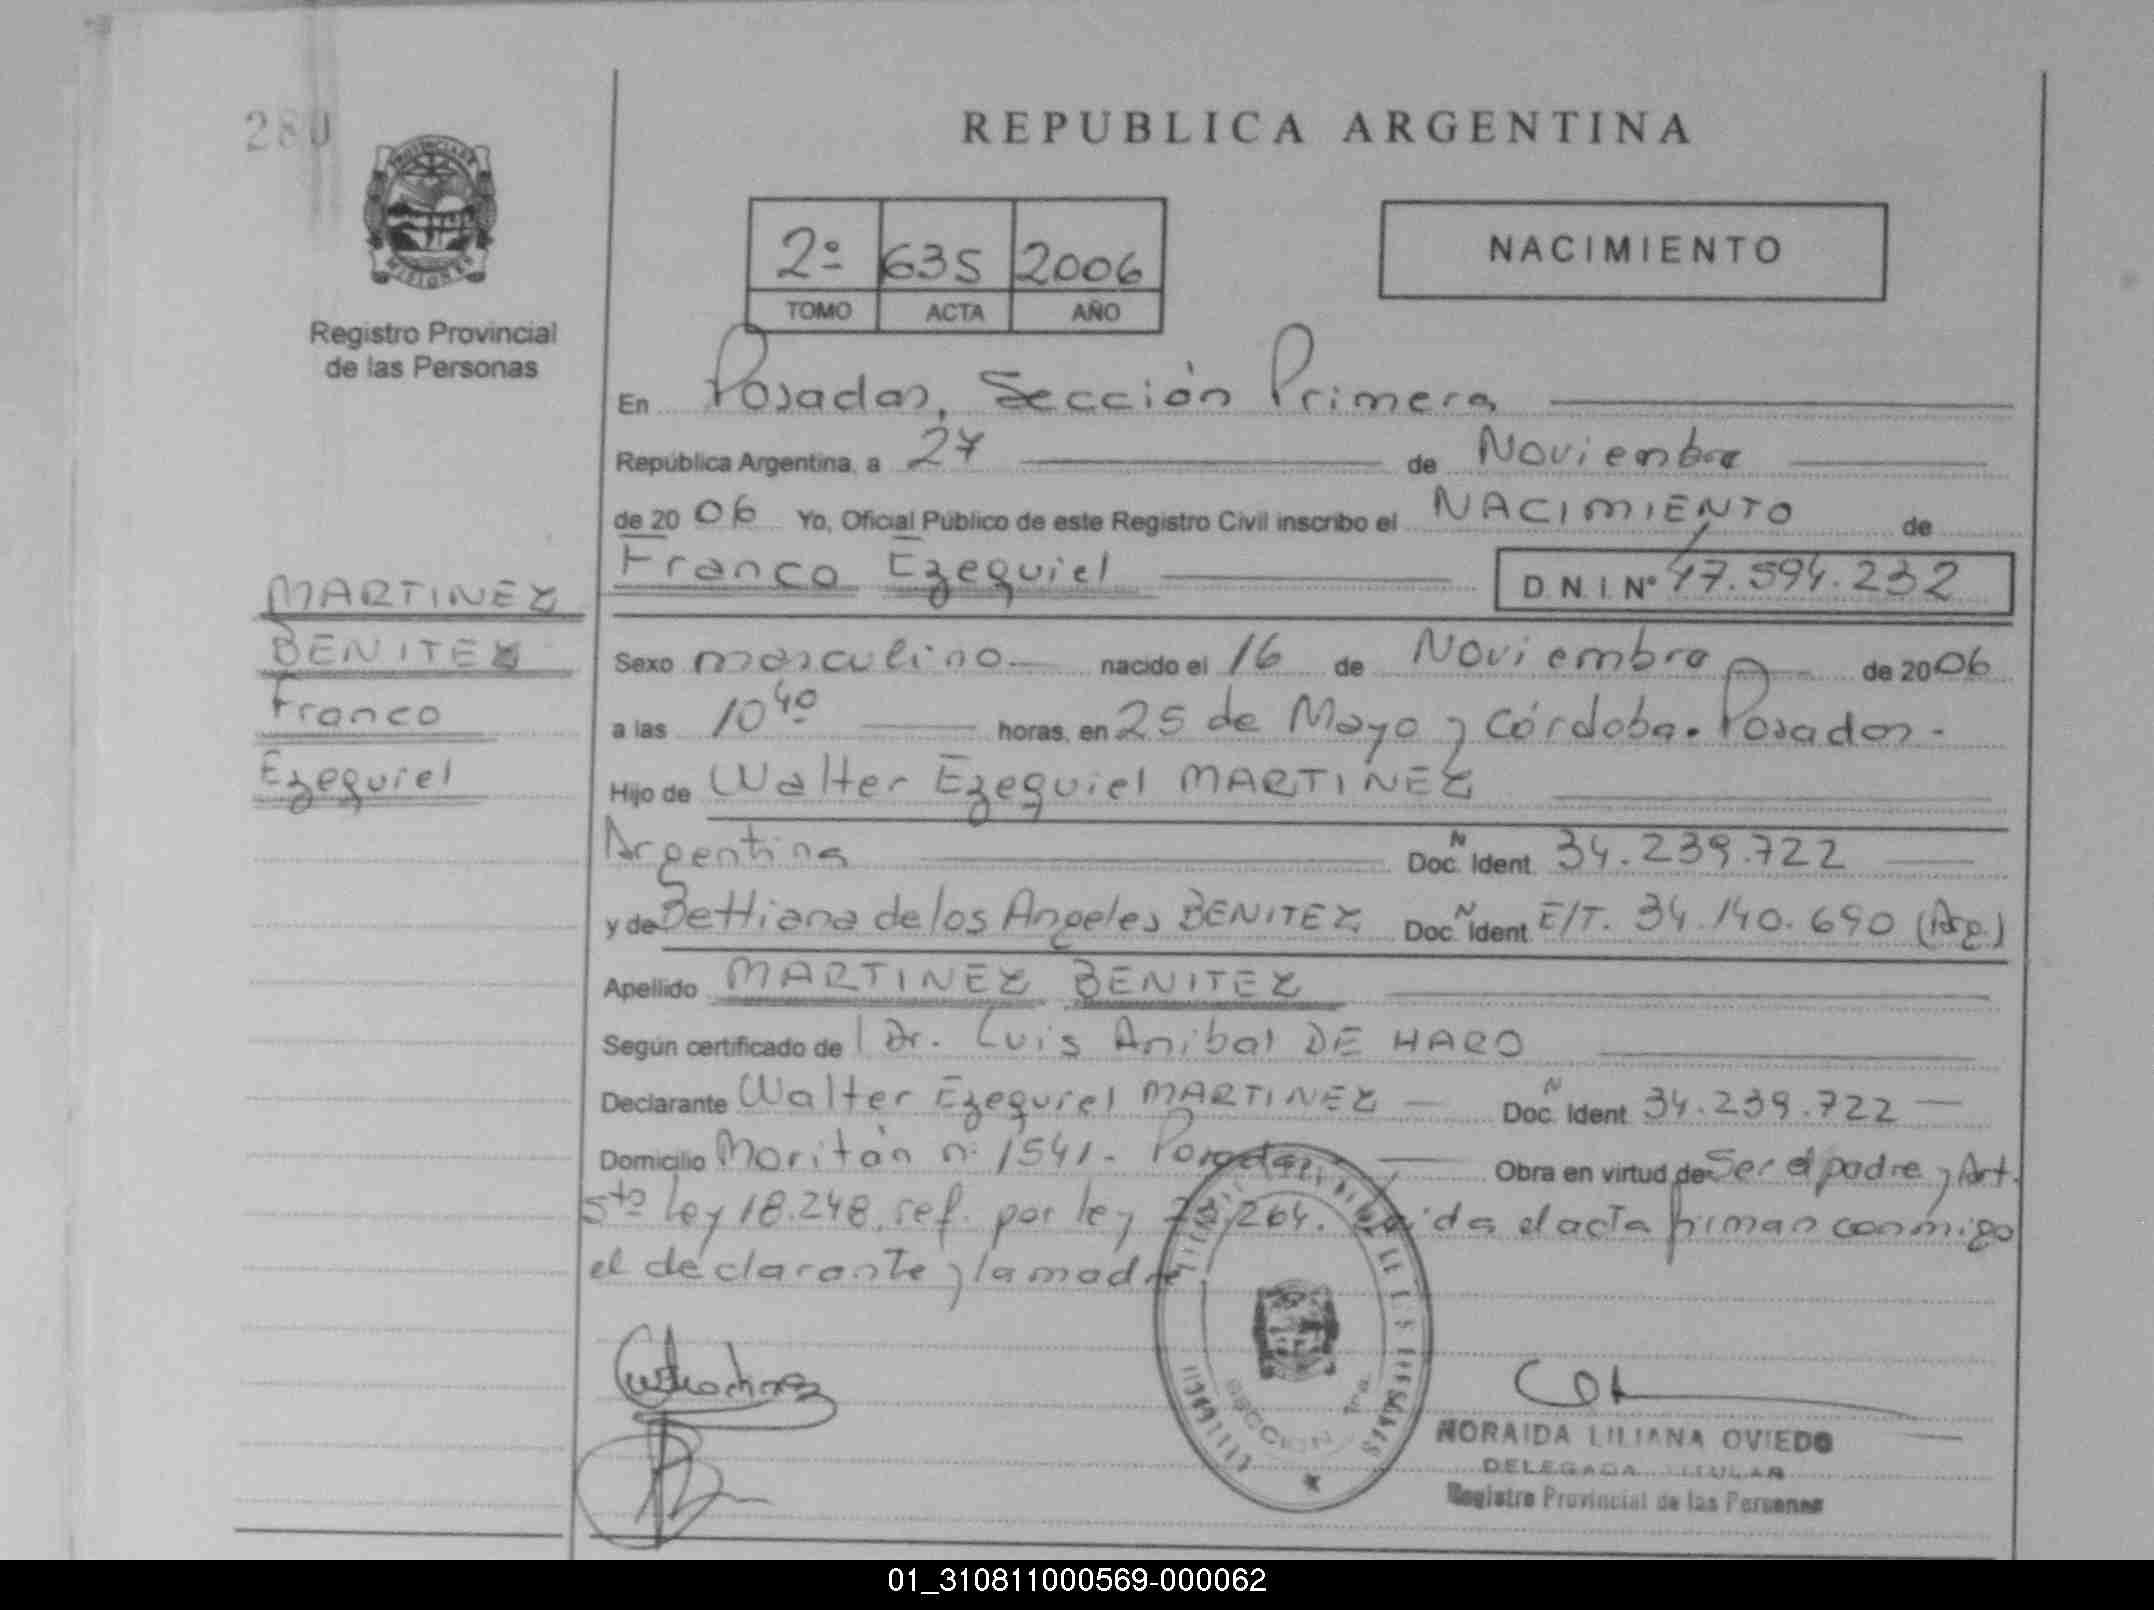 280
REPUBLICA ARGENTINA
PROVINCIA DE
MISIONES
Registro Provincial
de las Personas
2º 635 2006
TOMO ACTA AÑO
NACIMIENTO
En Posadas, Sección Primera
República Argentina, a 27 de Noviembre
de 2006 Yo, Oficial Público de este Registro Civil inscribo el NACIMIENTO de
Franco Ezequiel D.N.I. Nº 47.594.232
MARTINEZ
BENITEZ
Franco
Ezequiel
Sexo masculino nacido el 16 de Noviembre de 2006
a las 10 40 horas, en 25 de Mayo y Córdoba. Posadas.
Hijo de Walter Ezequiel MARTINEZ
Argentina Doc. N Ident. 34.239.722
y de Bettiana de los Angeles BENITEZ Doc. N Ident. E/T. 34.140.690 (Arg.)
Apellido MARTINEZ BENITEZ
Según certificado del Dr. Luis Anibal DE HARO
Declarante Walter Ezequiel MARTINEZ Doc. N Ident. 34.239.722
Domicilio Moritán n: 1541. Posadas. Obra en virtud de Ser el padre y Art.
5to ley 18.248, ref. por ley 23.264. Leída el acta firman conmigo
el declarante y la madre.
SECCION 1ra.
NORAIDA LILIANA OVIEDO
DELEGADA TITULAR
Registro Provincial de las Personas
01_310811000569-000062